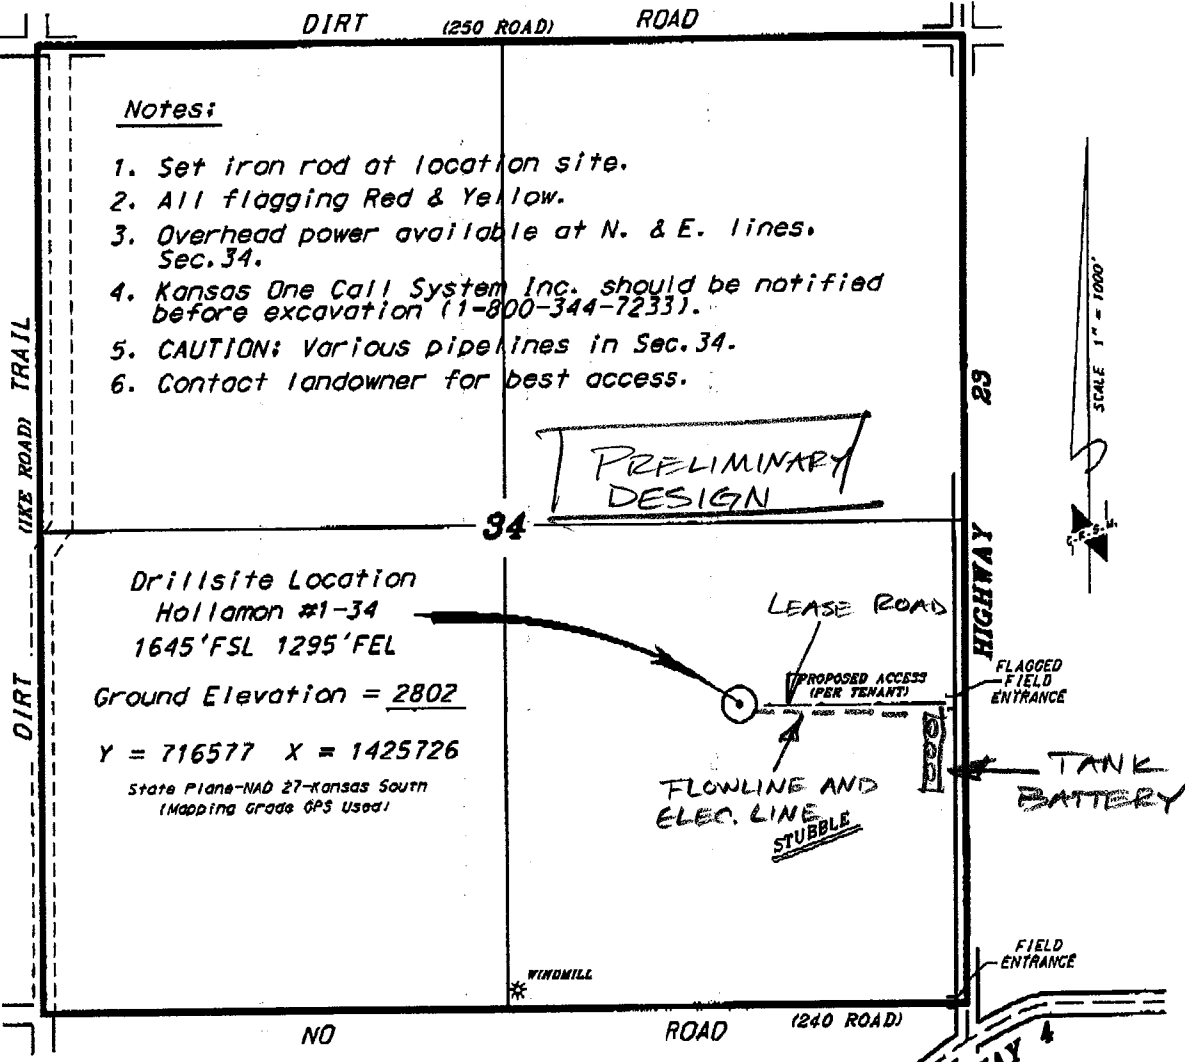 DIRT (250 ROAD) ROAD
Notes:
1. Set iron rod at location site.
2. All flagging Red & Yellow.
3. Overhead power available at N. & E. lines.
Sec. 34.
4. Kansas One Call System Inc. should be notified
before excavation (1-800-344-7233).
5. CAUTION: Various pipelines in Sec. 34.
6. Contact landowner for best access.
DIRT (IKE ROAD) TRAIL
HIGHWAY 23
SCALE 1" = 1000'
PRELIMINARY
DESIGN
34
Drillsite Location
Hollamon #1-34
1645'FSL 1295'FEL
Ground Elevation = 2802
Y = 716577 X = 1425726
State Plane-NAD 27-Kansas South
(Mapping Grade GPS Used)
LEASE ROAD
PROPOSED ACCESS
(PER TENANT)
FLAGGED
FIELD
ENTRANCE
TANK
BATTERY
FLOWLINE AND
ELEC. LINE
STUBBLE
WINDMILL
FIELD
ENTRANCE
NO ROAD (240 ROAD)
4